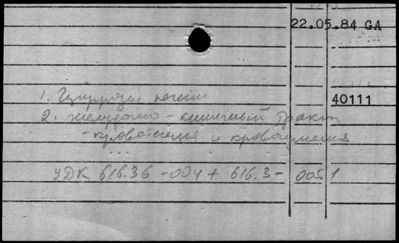 22.05.84 GA
40111
1. Циррозы печени
2. желудочно-кишечный тракт
- кровотечения и кровоизлияния
УДК 616.36 -004 + 616.3 - 005.1